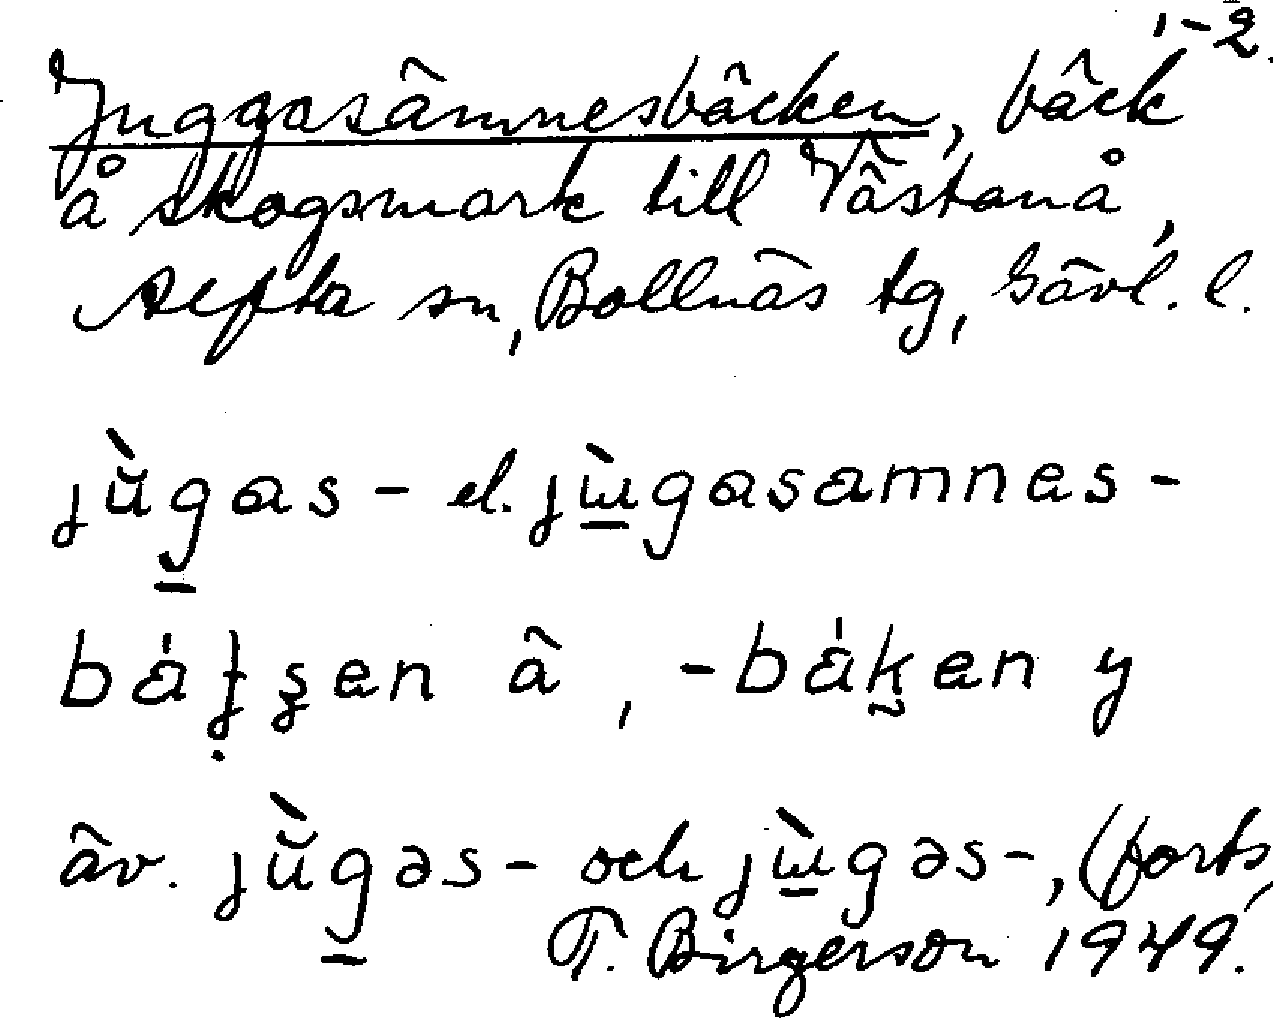 1-2.
Juggasämnesbäcken, bäck
å skogsmark till Västanå,
Alfta sn, Bollnäs tg, Gävl. l.
jŭ̀gas- el. jɯ̀gasamnes-
bátʃen ä, -báken y
äv. jŭ̀gəs- och jɯ̀gəs-, (forts.
T. Birgerson 1949.